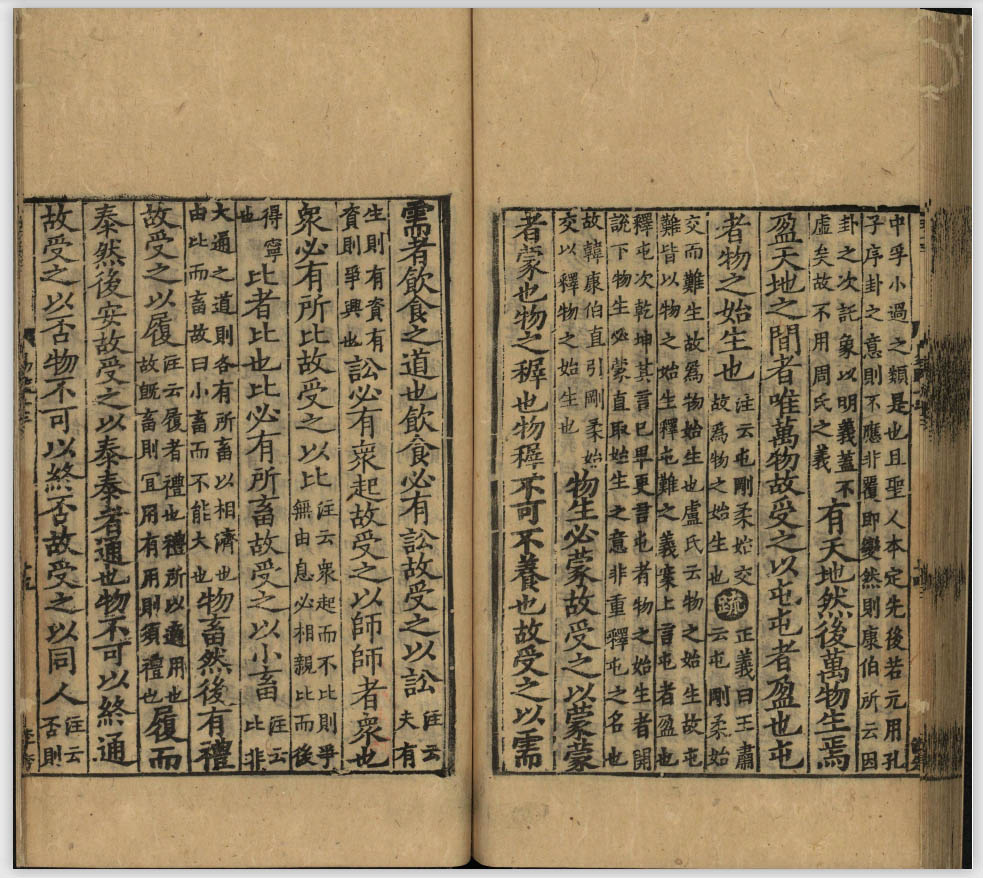 中孚小過之類是也且聖人本定先後若元用孔
子序卦之意則不應非覆即變然則康伯所云因
卦之次託象以明義蓋不
虛矣故不用周氏之義
有天地然後萬物生焉
盈天地之間者唯萬物故受之以屯屯者盈也屯
者物之始生也
注云屯剛柔始交
故爲物之始生也
疏
正義曰王肅
云屯剛柔始
交而難生故爲物始生也盧氏云物之始生故屯
難皆以物之始生釋屯難之義案上言屯者盈也
釋屯次乾坤其言已畢更言屯者物之始生者開
說下物生必蒙直取始生之意非重釋屯之名也
故韓康伯直引剛柔始
交以釋物之始生也
物生必蒙故受之以蒙蒙
者蒙也物之穉也物穉不可不養也故受之以需
需者飲食之道也飲食必有訟故受之以訟
注云
夫有
生則有資有
資則爭興也
訟必有衆起故受之以師師者衆也
衆必有所比故受之以比
注云衆起而不比則爭
無由息必相親比而後
得寧
也
比者比也比必有所畜故受之以小畜
注云
比非
大通之道則各有所畜以相濟也
由比而畜故曰小畜而不能大也
物畜然後有禮
故受之以履
注云履者禮也禮所以適用也
故旣畜則宜用有用則須禮也
履而
泰然後安故受之以泰泰者通也物不可以終通
故受之以否物不可以終否故受之以同人
注云
否則